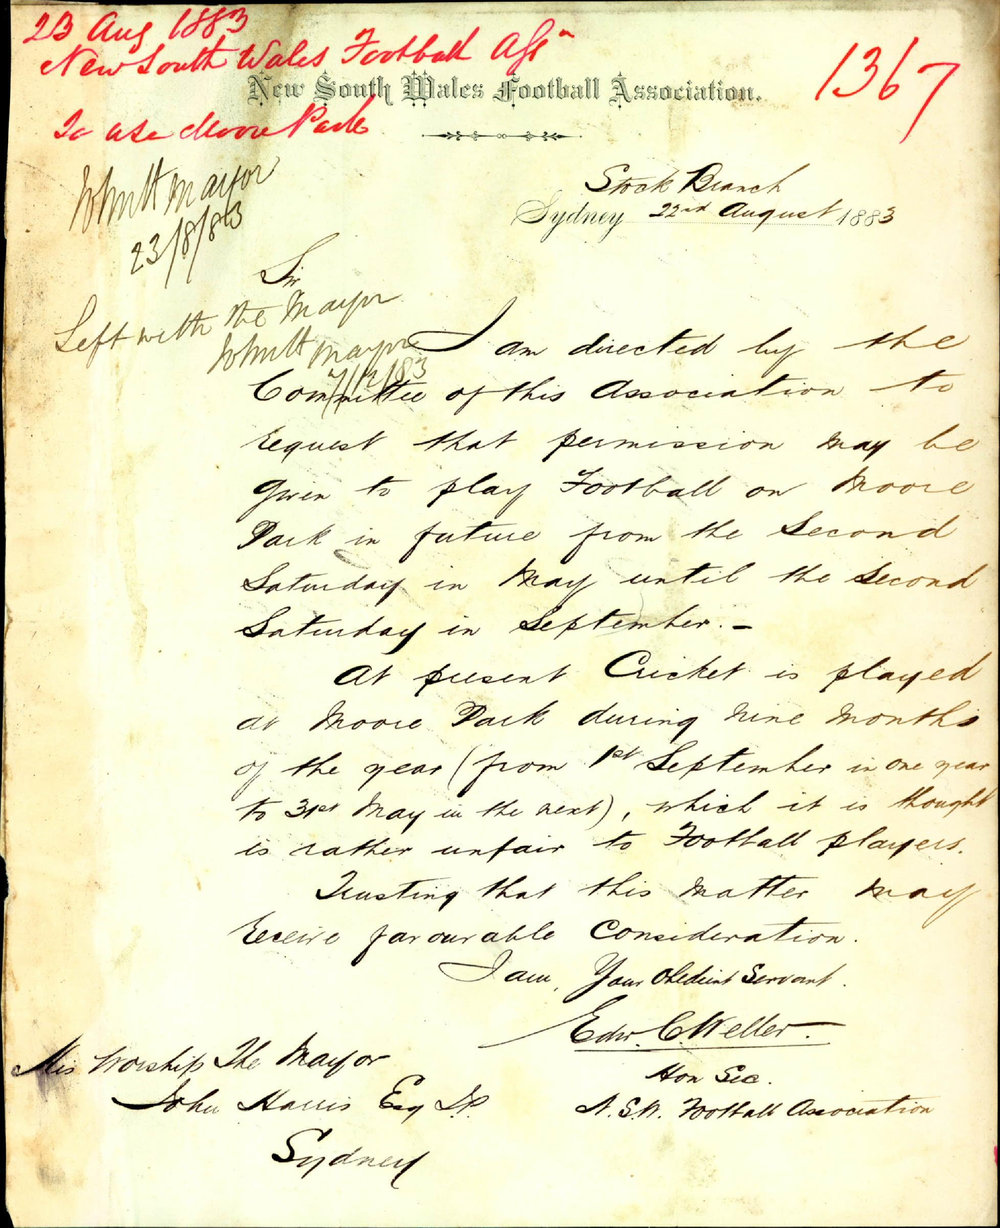 23 Aug 1883
New South Wales Football Assn
1367
New South Wales Football Association.
To use Moore Park
John H Mayor
23/8/83
Stock Branch
Sydney 22nd August 1883
Sir
Left with the Mayor
John H Mayor
7/12/83
I am directed by the
Committee of this Association to
request that permission may be
given to play Football on Moore
Park in future from the Second
Saturday in May until the Second
Saturday in September. –
At present Cricket is played
at Moore Park during nine months
of the year (from 1st September in one year
to 31st May in the next), which it is thought
is rather unfair to Football players.
Trusting that this matter may
receive favourable Consideration.
I am, Your Obedient Servant.
Edw. C. Weller.
Hon Sec.
N.S.W. Football Association
His Worship The Mayor
John Harris Esq J.P.
Sydney